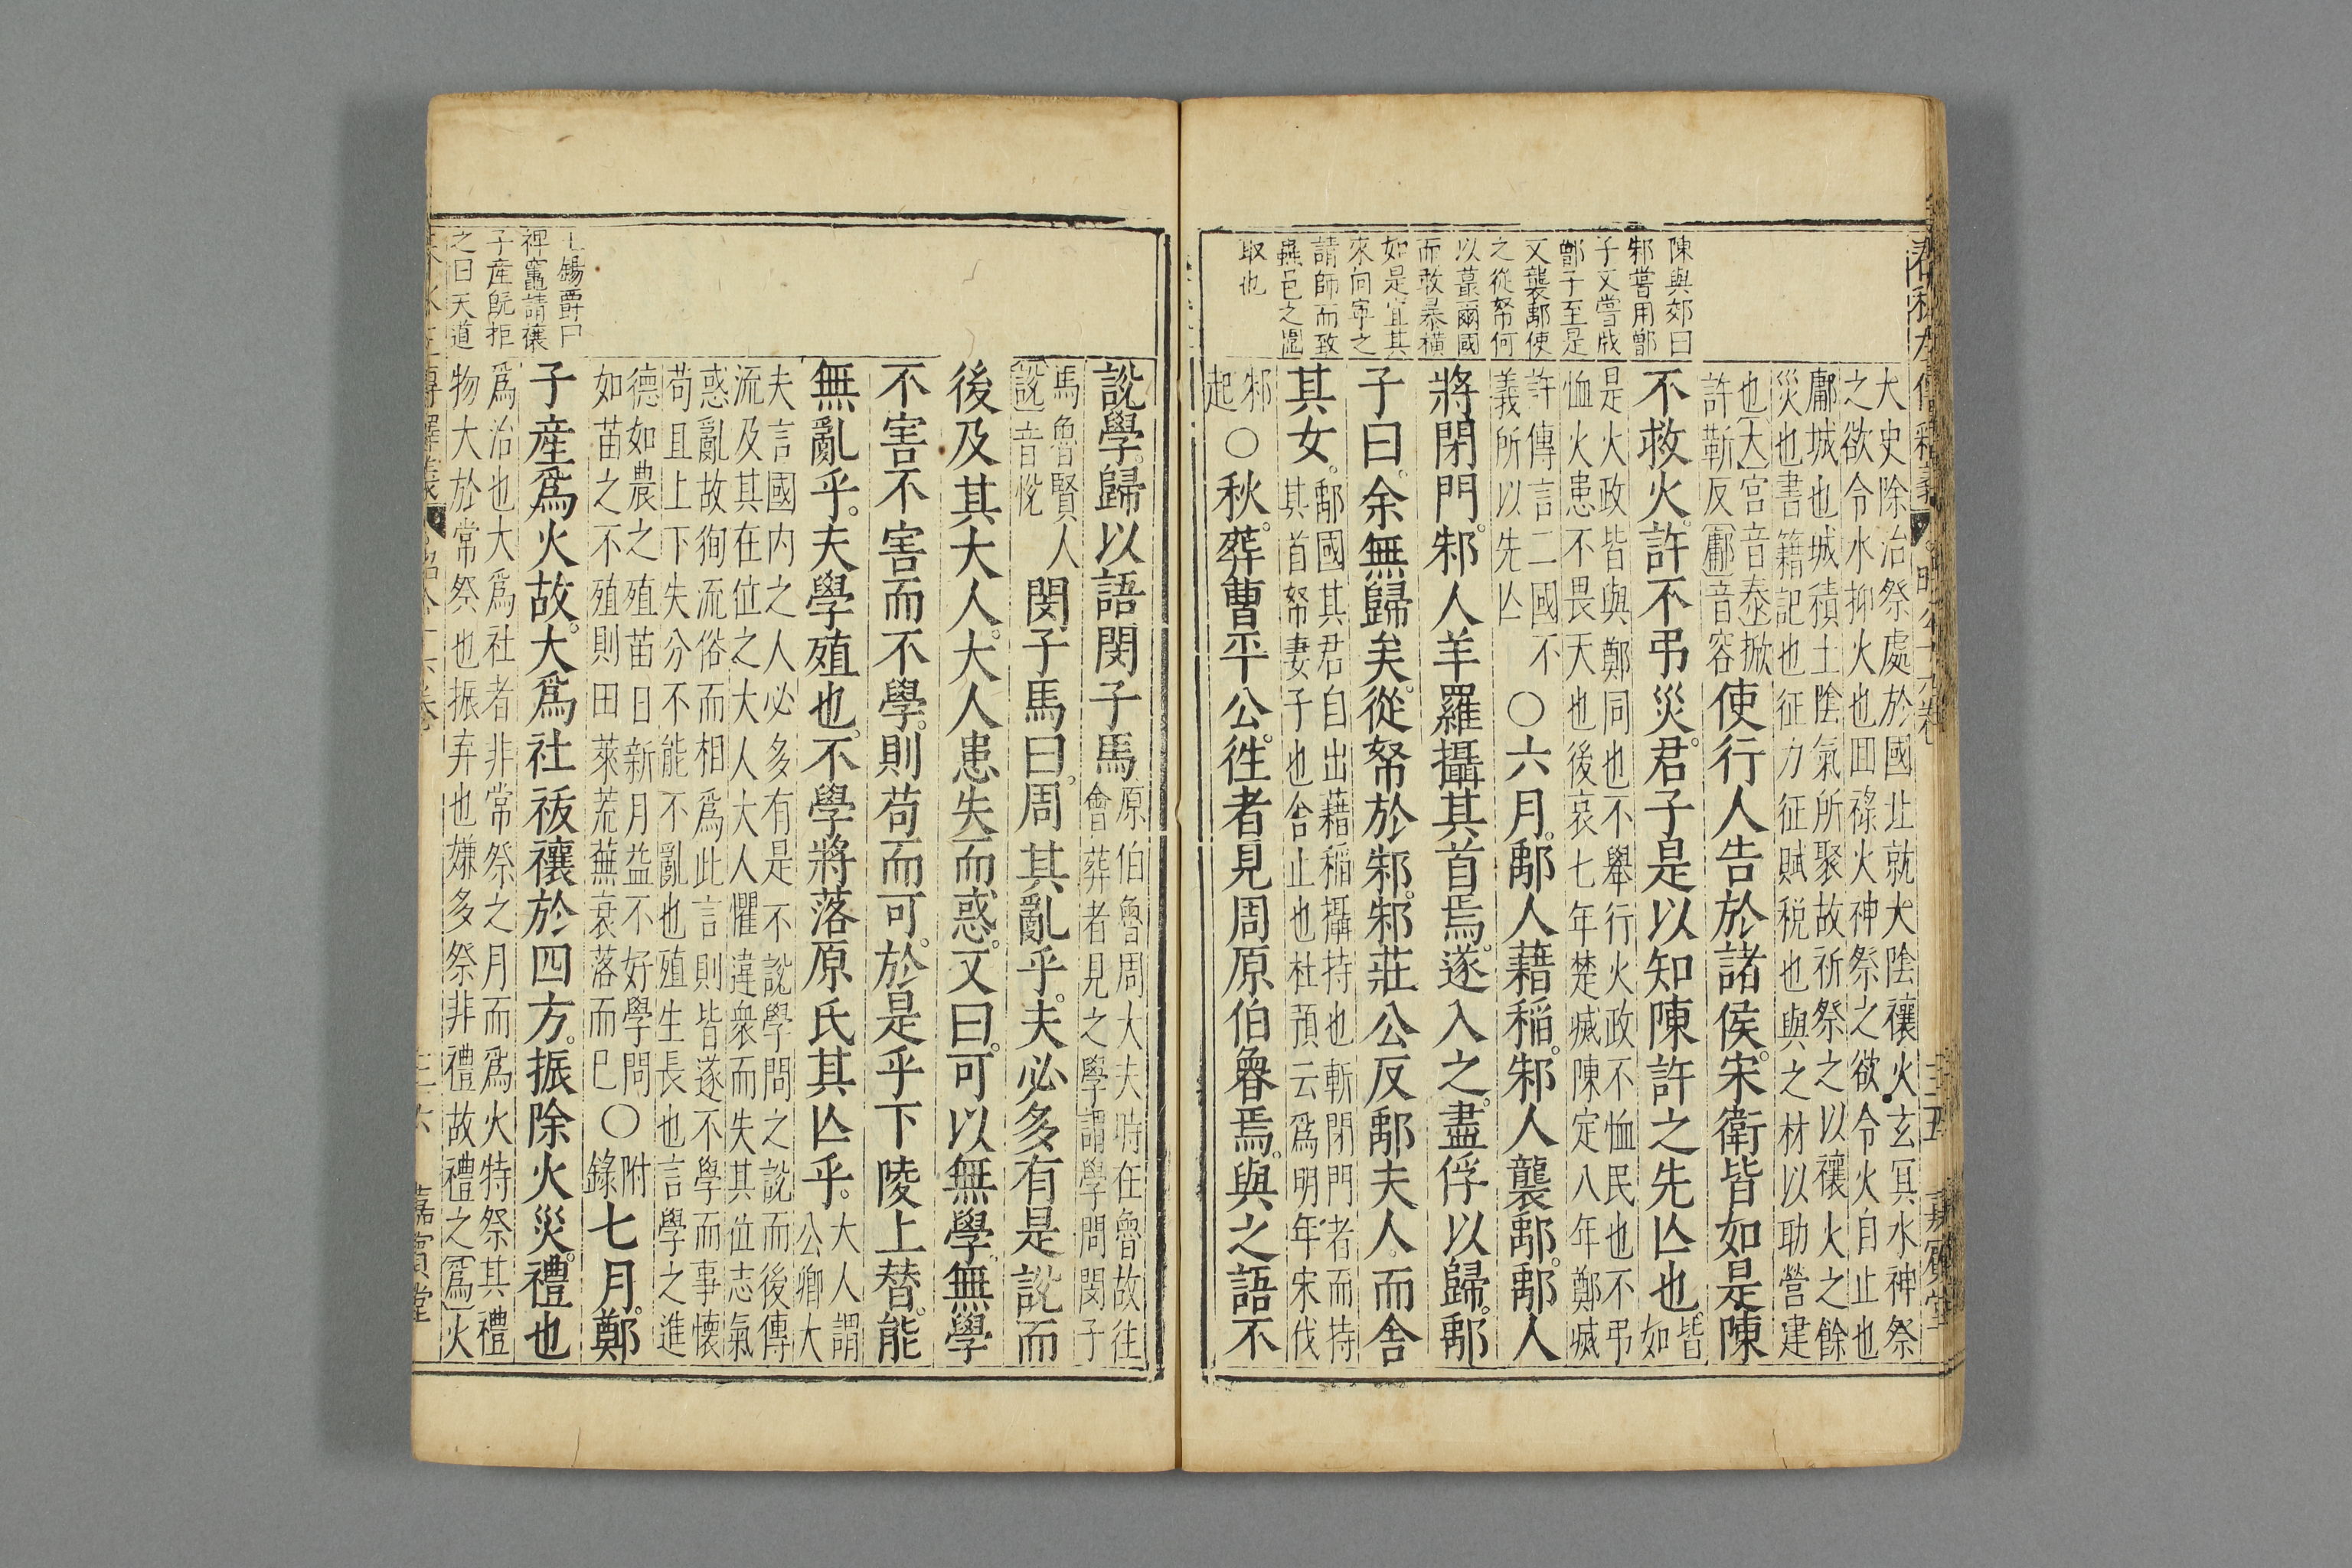 陳與郊曰
邾嘗用鄫
子又嘗戕
鄫子至是
又襲鄅使
之從帑何
以蕞爾國
而敢暴橫
如是宜其
來向寧之
請師而致
蟲邑之圍
取也
大史除治祭處於國北就大陰禳火玄冥水神祭
之欲令水抑火也囬祿火神祭之欲令火自止也
鄘城也城積土陰氣所聚故祈祭之以禳火之餘
災也書籍記也征力征賦税也與之材以助營建
也大宫音泰㮯
許靳反鄘音容
使行人告於諸侯宋衛皆如是陳
不救火許不弔災君子是以知陳許之先亾也
皆
如
是火政皆與鄭同也不舉行火政不恤民也不弔
恤火患不畏天也後哀七年楚烕陳定八年鄭烕
許傳言二國不
義所以先亾
○六月鄅人藉稻邾人襲鄅鄅人
將閉門邾人羊羅攝其首焉遂入之盡俘以歸鄅
子曰余無歸矣從帑於邾邾莊公反鄅夫人而舍
其女
鄅國其君自出藉稻攝持也斬閉門者而持
其首帑妻子也舍止也杜預云爲明年宋伐
邾
起
○秋葬曹平公徃者見周原伯魯焉與之語不
說學歸以語閔子馬
原伯魯周大夫時在魯故往
會葬者見之學謂學問閔子
馬魯賢人
說音恱
閔子馬曰周其亂乎夫必多有是說而
後及其大人大人患失而惑又曰可以無學無學
不害不害而不學則苟而可於是乎下陵上替能
無亂乎夫學殖也不學將落原氏其亾乎
大人謂
公卿大
夫言國内之人必多有是不說學問之說而後傳
流及其在位之大人大人懼違衆而失其位志氣
惑亂故徇流俗而相爲此言則皆遂不學而事懐
苟且上下失分不能不亂也殖生長也言學之進
德如農之殖苗日新月益不好學問
如苗之不殖則田萊荒蕪衰落而已
○
附
錄
七月鄭
子産爲火故大爲社祓禳於四方振除火災禮也
爲治也大爲社者非常祭之月而爲火特祭其禮
物大於常祭也振弃也嫌多祭非禮故禮之爲火
王錫爵曰
裨竈請禳
子産旣拒
之曰天道